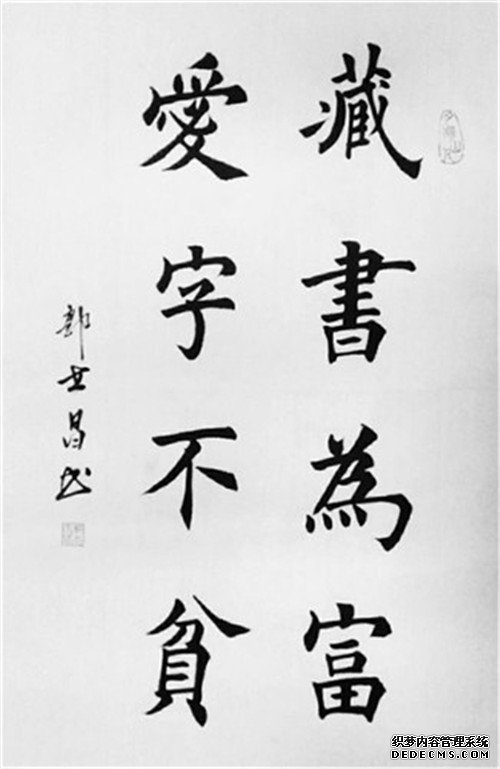 藏書為富
愛字不貧
郭世昌书
织梦内容管理系统
DEDECMS.COM